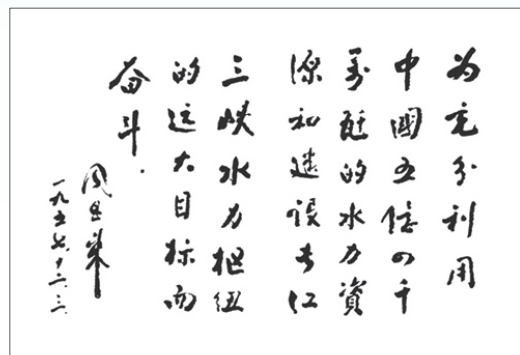 为充分利用
中國五億四千
萬瓩的水力資
源和建設长江
三峡水力樞纽
的远大目标而
奋斗.
周恩来
一九五七、十二、三、